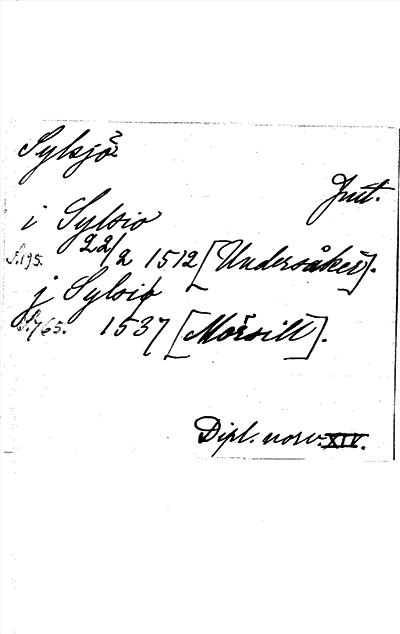 Sylsjö?
Jmt.
i Sylsio
22/2 1512 [Undersåker].
S.195.
j Sylsiø
S.765. 1537 [Mörsill].
Dipl. norv. XIV.